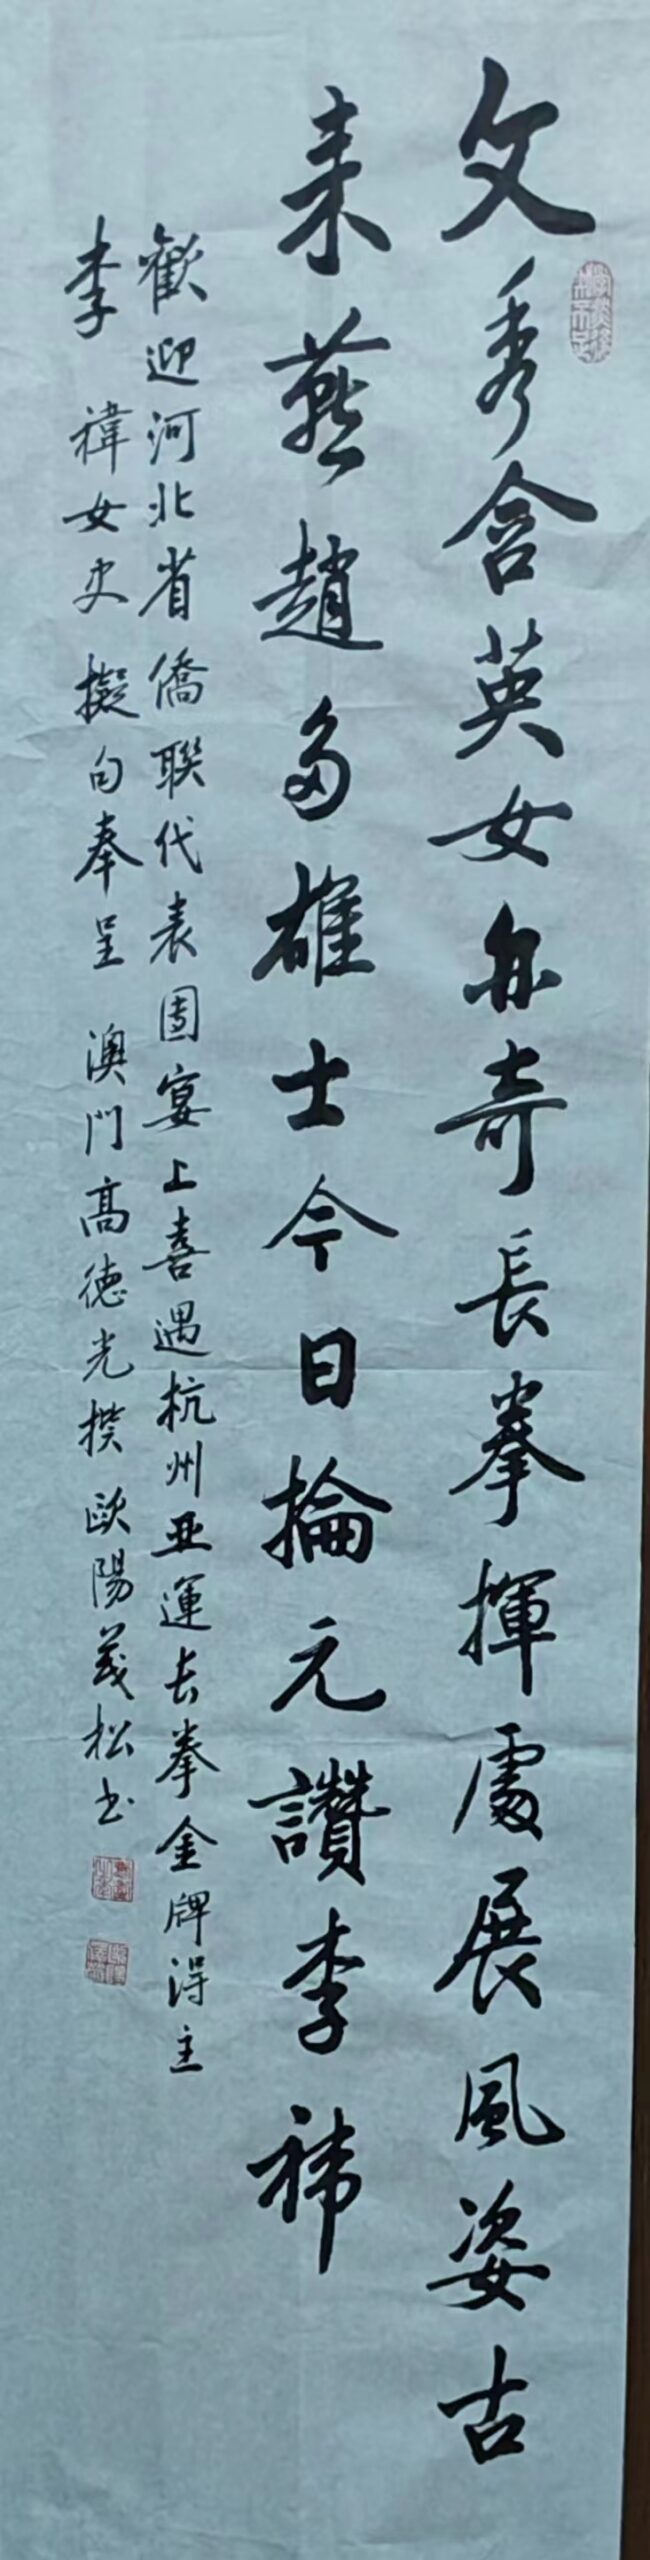 文秀含英女亦奇長拳揮處展風姿古
来燕趙多雄士今日掄元讚李祎
歡迎河北省僑聯代表團宴上喜遇杭州亚運长拳金牌得主
李禕女史擬句奉呈 澳門高德光撰歐陽茂松书